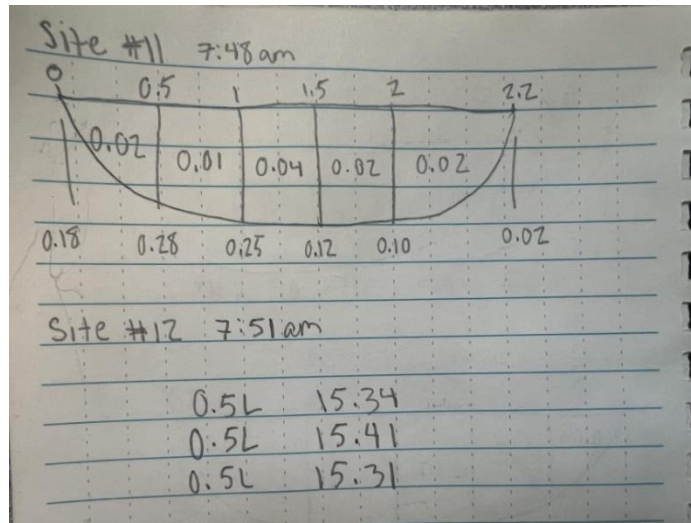 Site #11 7:48am
0 0.5 1 1.5 2 2.2
0.02 0.01 0.04 0.02 0.02
0.18 0.28 0.25 0.12 0.10 0.02
Site #12 7:51am
0.5L 15.34
0.5L 15.41
0.5L 15.31